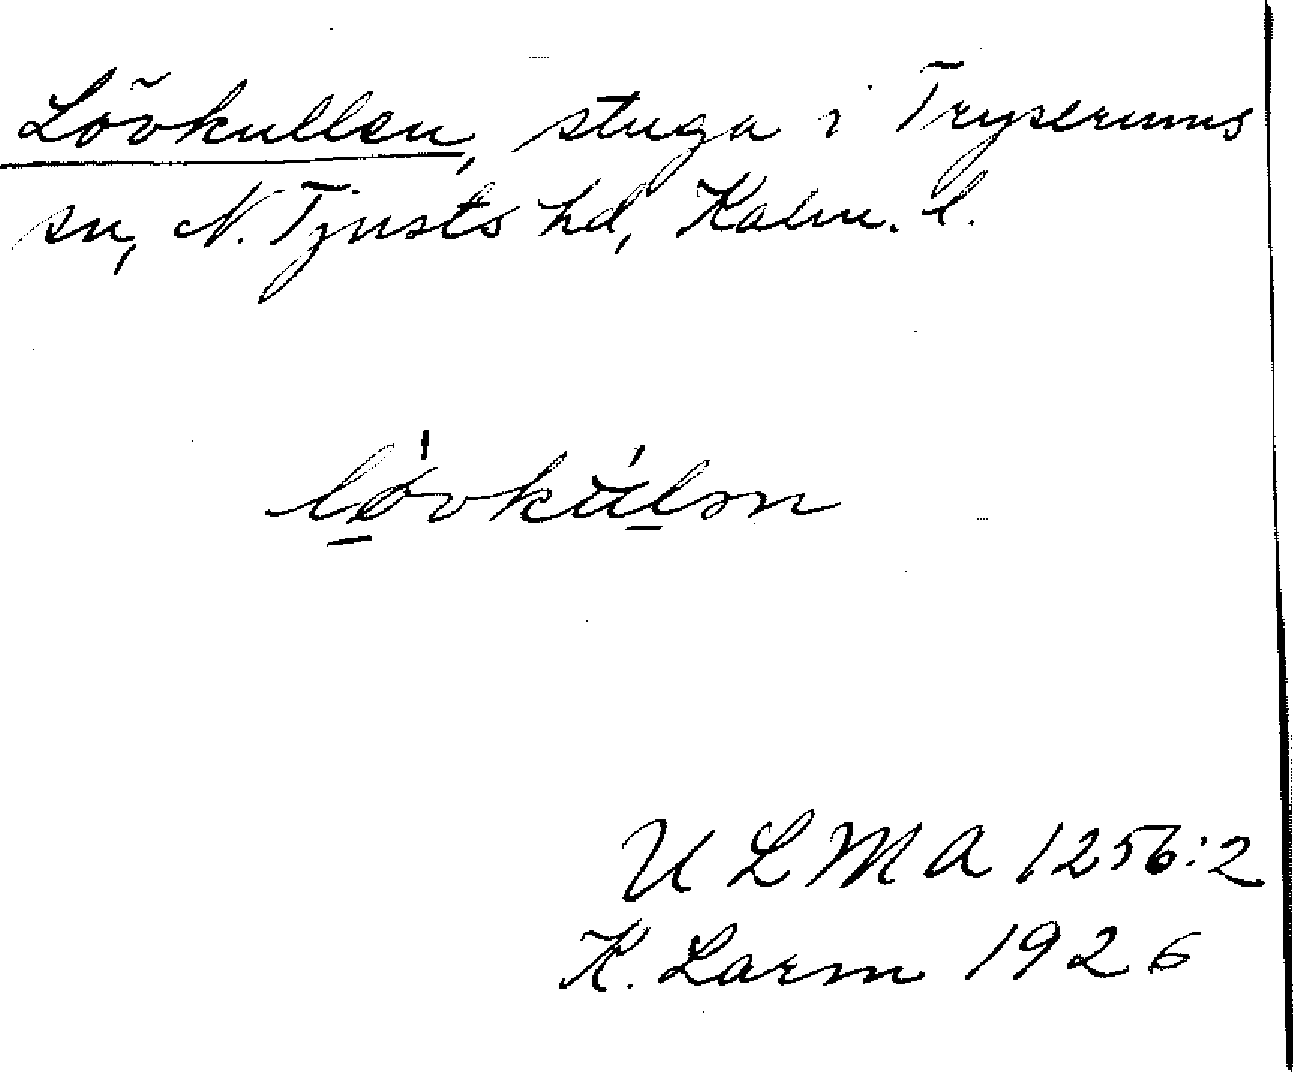 Lövkullen, stuga i Tryserums
sn, N. Tjusts hd, Kalm. l.
U L M A 1256:2
K. Larm 1926